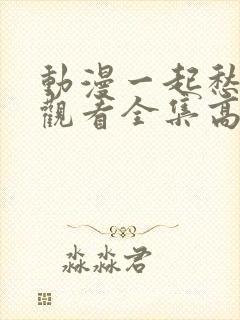 動漫一起愁
觀看全集高
淼淼君